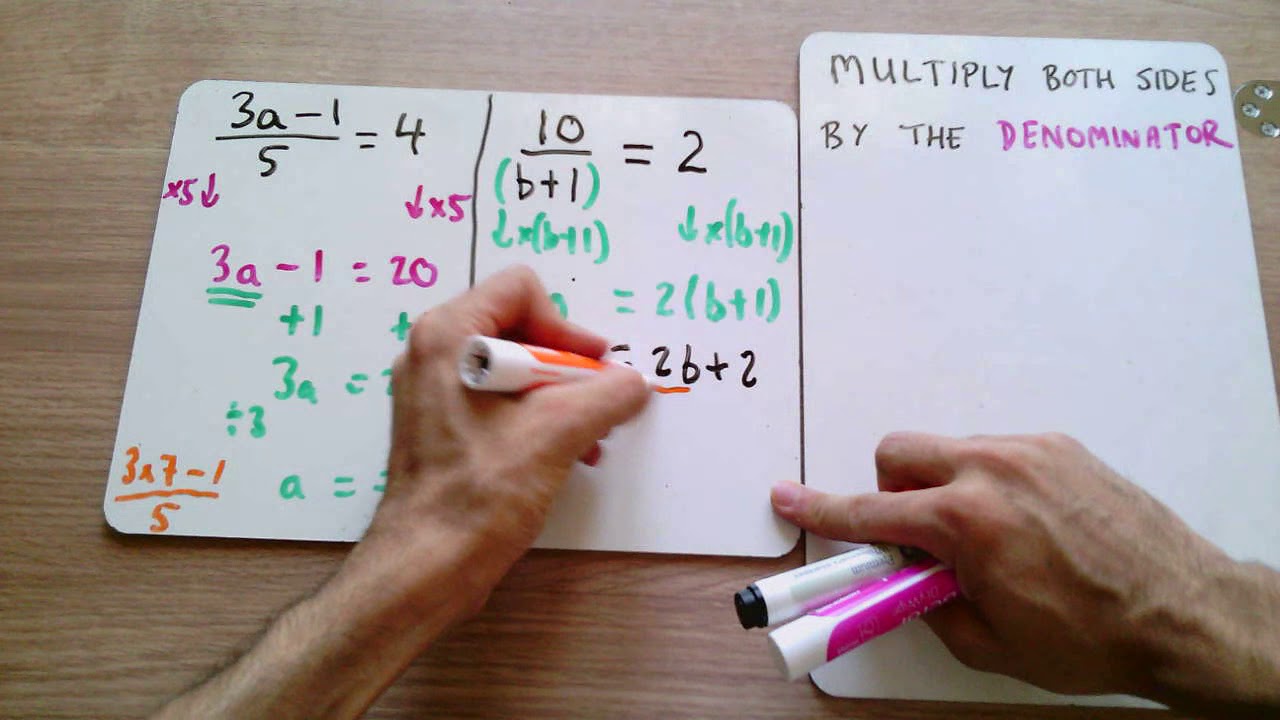 3a-1
5
= 4
×5↓ ↓×5
3a - 1 = 20
+1 +
3a =
÷3
a =
3×7-1
5
10
(b+1)
= 2
↓×(b+1) ↓×(b+1)
= 2(b+1)
= 2b+2
MULTIPLY BOTH SIDES
BY THE DENOMINATOR